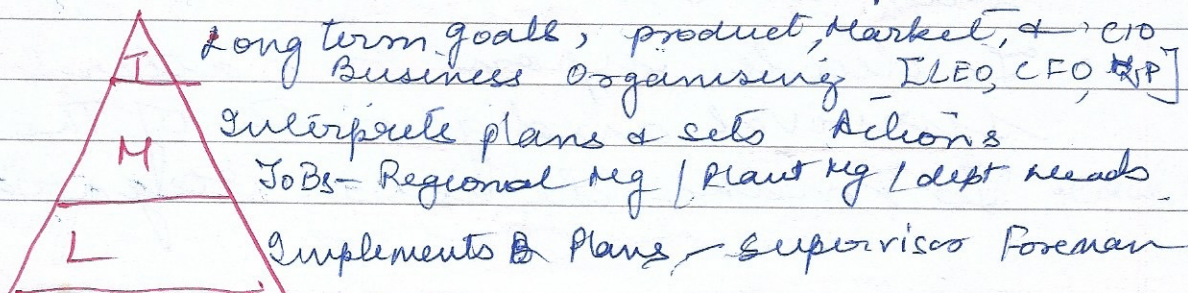 T
Long term goals, product, Market, & CIO
Business Organising [CEO, CFO, VP]
M
Interprete plans & sets Actions
JoBs - Regional Mg / Plant Mg / dept heads.
L
Implements Plans, - Supervisor Foreman